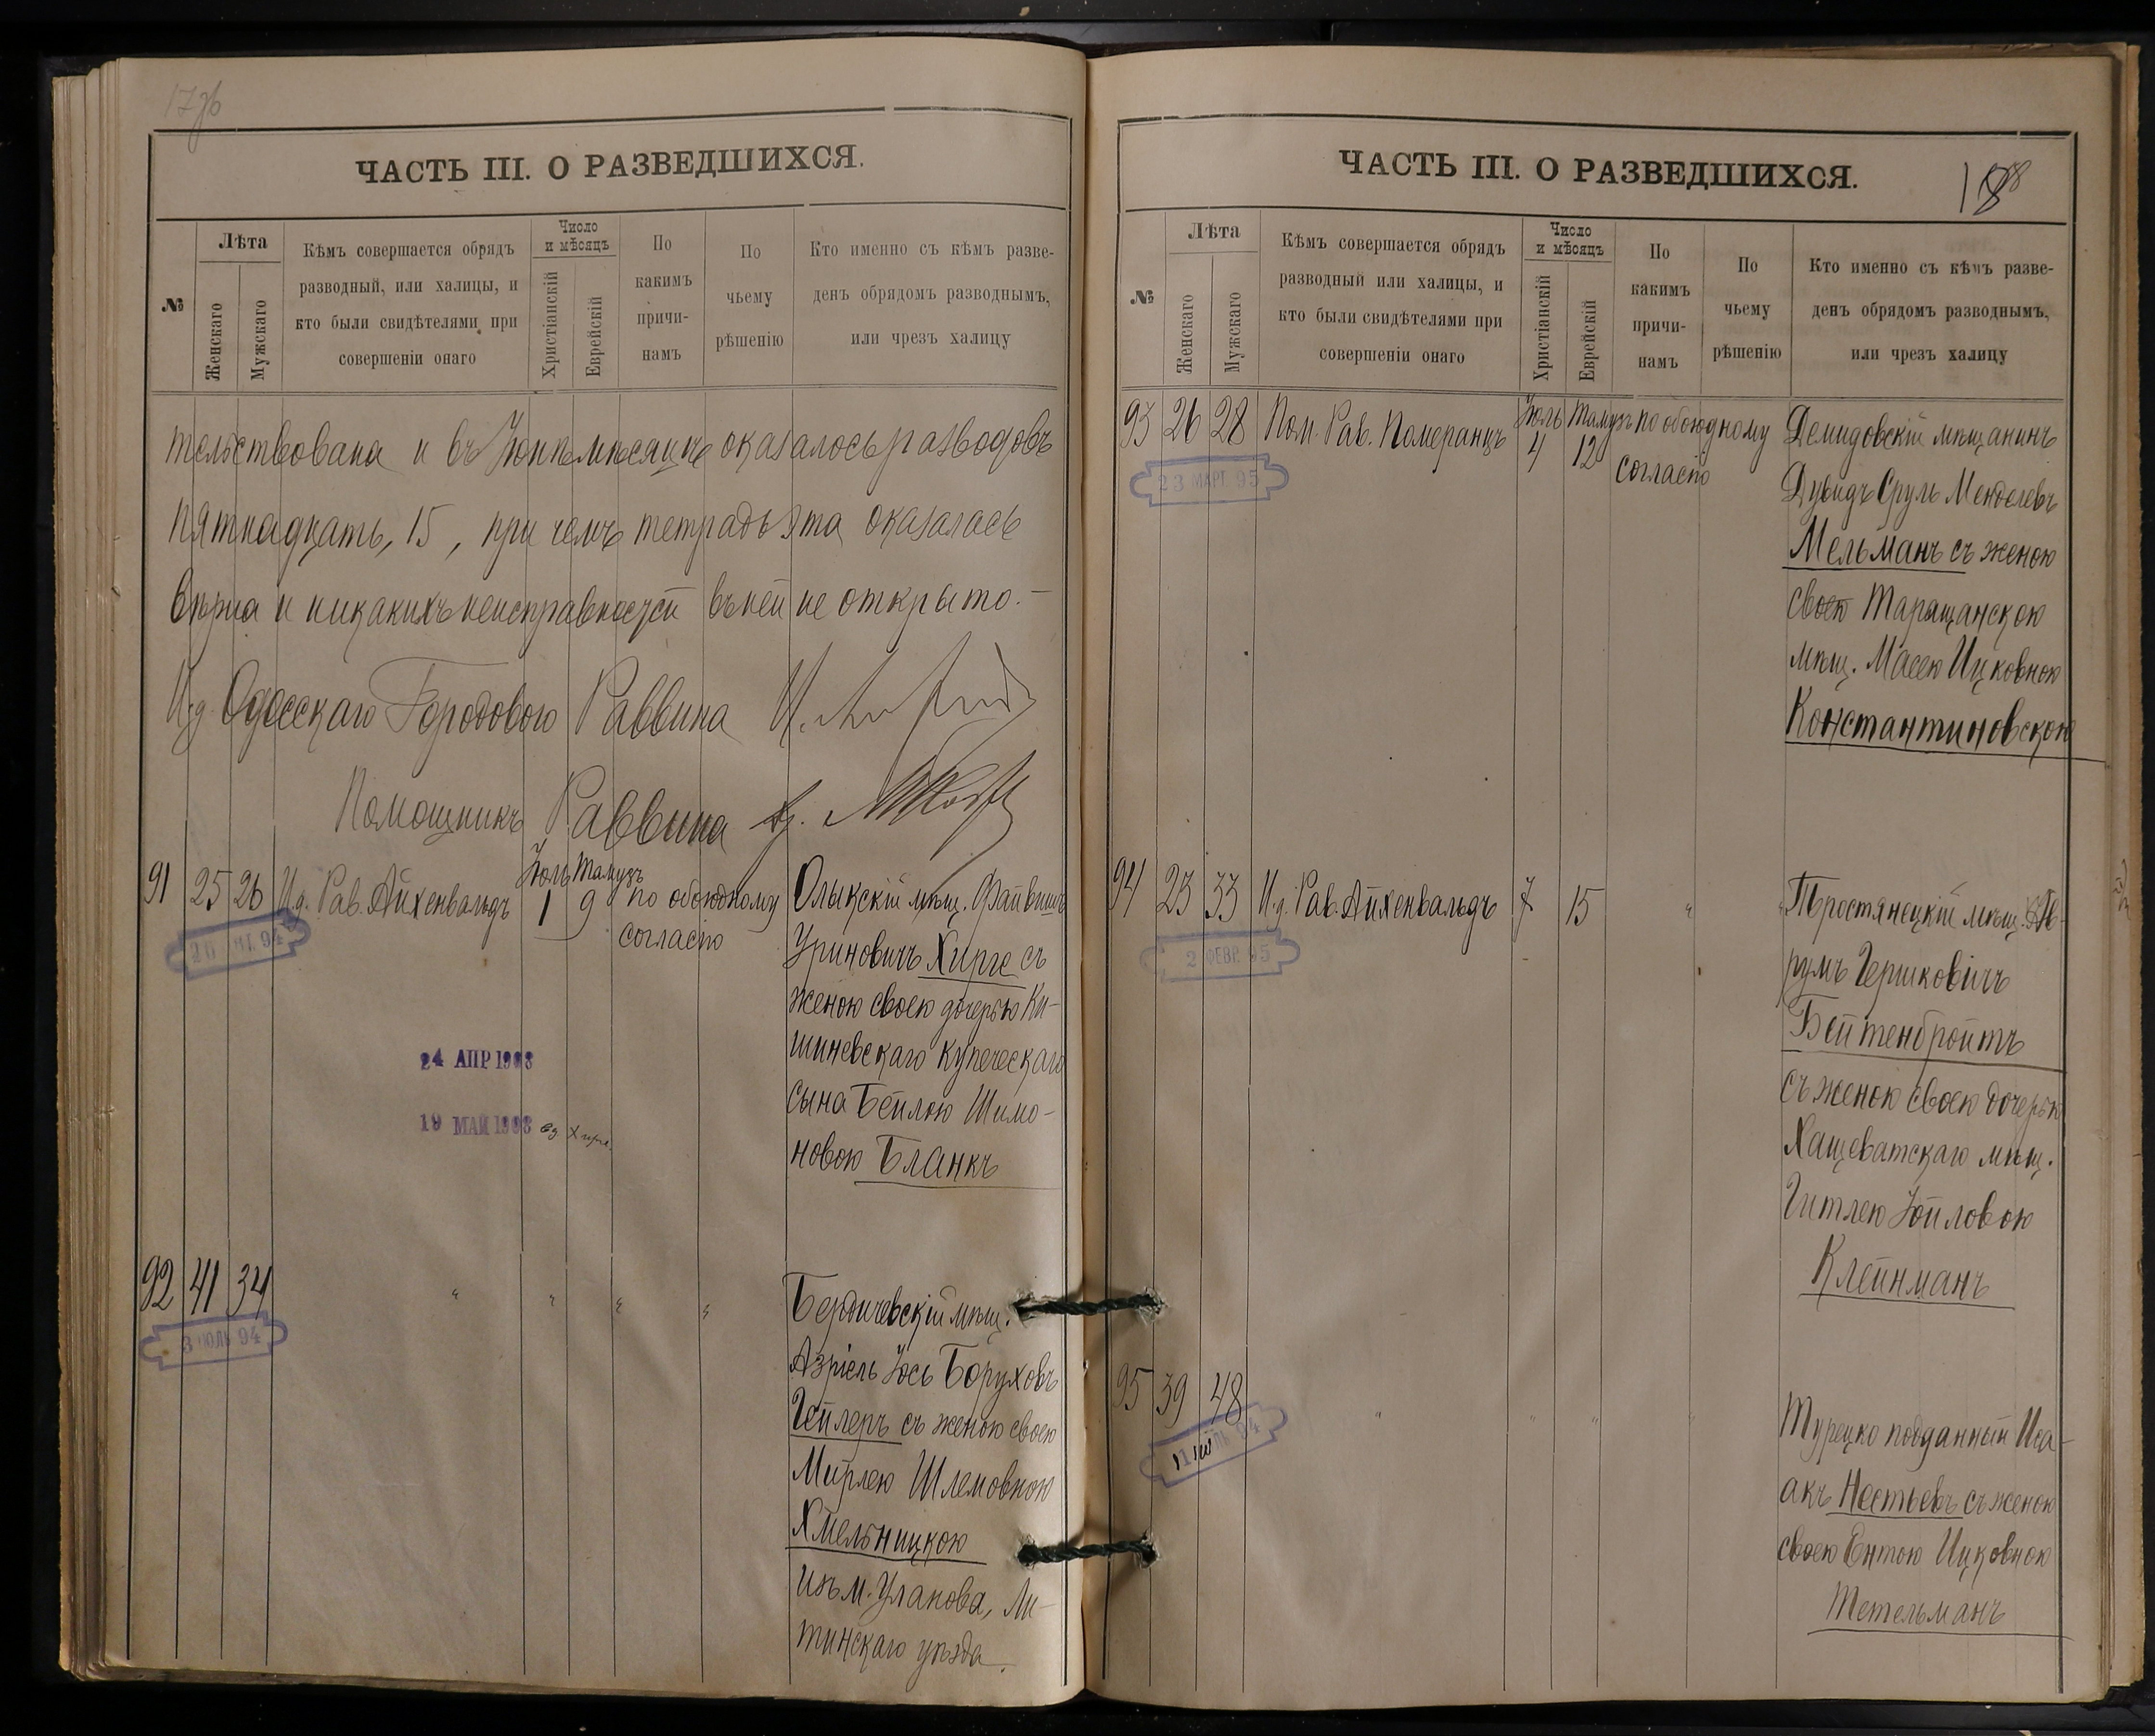 ЧАСТЬ III. О РАЗВЕДШИХСЯ.
№
Лѣта
Женскаго
Мужскаго
Кѣмъ совершается обрядъ
разводный, или халицы, и
кто были свидѣтелями при
совершеніи онаго
Число
и мѣсяцъ
Христіанскій
Еврейскій
По
какимъ
причи-
намъ
По
чьему
рѣшенію
Кто именно съ кѣмъ разве-
денъ обрядомъ разводнымъ,
или чрезъ халицу
тельствована и въ Іюнѣ мѣсяцѣ оказалось разводовъ
пятнадцать, 15, при чемъ тетрадь эта оказалась
вѣрна и никакихъ неисправностей въ ней не открыто.-
И.д. Одесскаго Городового Раввина
Помощникъ Раввина
91 25 26 И.д. Рав. Айхенвальдъ Іюль 1 Тамузъ 9 по обоюдному
согласію
Олыкскій мѣщ. Файвишъ
Уриновичъ Хирге съ
женою своею дочерью Ки-
шиневскаго купеческаго
сына Бейлою Шимо-
новою Бланкъ
24 АПР 1903
19 МАЙ 1903
92 41 34 " " " "
3 ІЮЛЬ 94
Бердичевскій мѣщ.
Азріель Іось Боруховъ
Гейлеръ съ женою своею
Мирлею Шлемовною
Хмельницкою
изъ м. Уланова, Ли-
тинскаго уѣзда.
ЧАСТЬ III. О РАЗВЕДШИХСЯ.
18
№
Лѣта
Женскаго
Мужскаго
Кѣмъ совершается обрядъ
разводный или халицы, и
кто были свидѣтелями при
совершеніи онаго
Число
и мѣсяцъ
Христіанскій
Еврейскій
По
какимъ
причи-
намъ
По
чьему
рѣшенію
Кто именно съ кѣмъ разве-
денъ обрядомъ разводнымъ,
или чрезъ халицу
93 26 28 Пом. Рав. Померанцъ Іюль 4 Тамузъ 12 по обоюдному
согласію
23 МАРТ. 95
Демидовскій мѣщанинъ
Дувидъ Сруль Менделевъ
Мельманъ съ женою
своею Таращанскою
мѣщ. Масею Ицковною
Константиновскою
94 23 33 И.д. Рав. Айхенвальдъ 7 15 "
2 ФЕВР. 95
Тростянецкій мѣщ. Аб-
румъ Гершковичъ
Бейтенбройтъ
съ женою своею дочерью
Хащеватскаго мѣщ.
Гитлею Іойловою
Клейнманъ
95 39 48 " " " "
Турецко подданный Иса-
акъ Нестьевъ съ женою
своею Ентою Ицковною
Тетельманъ